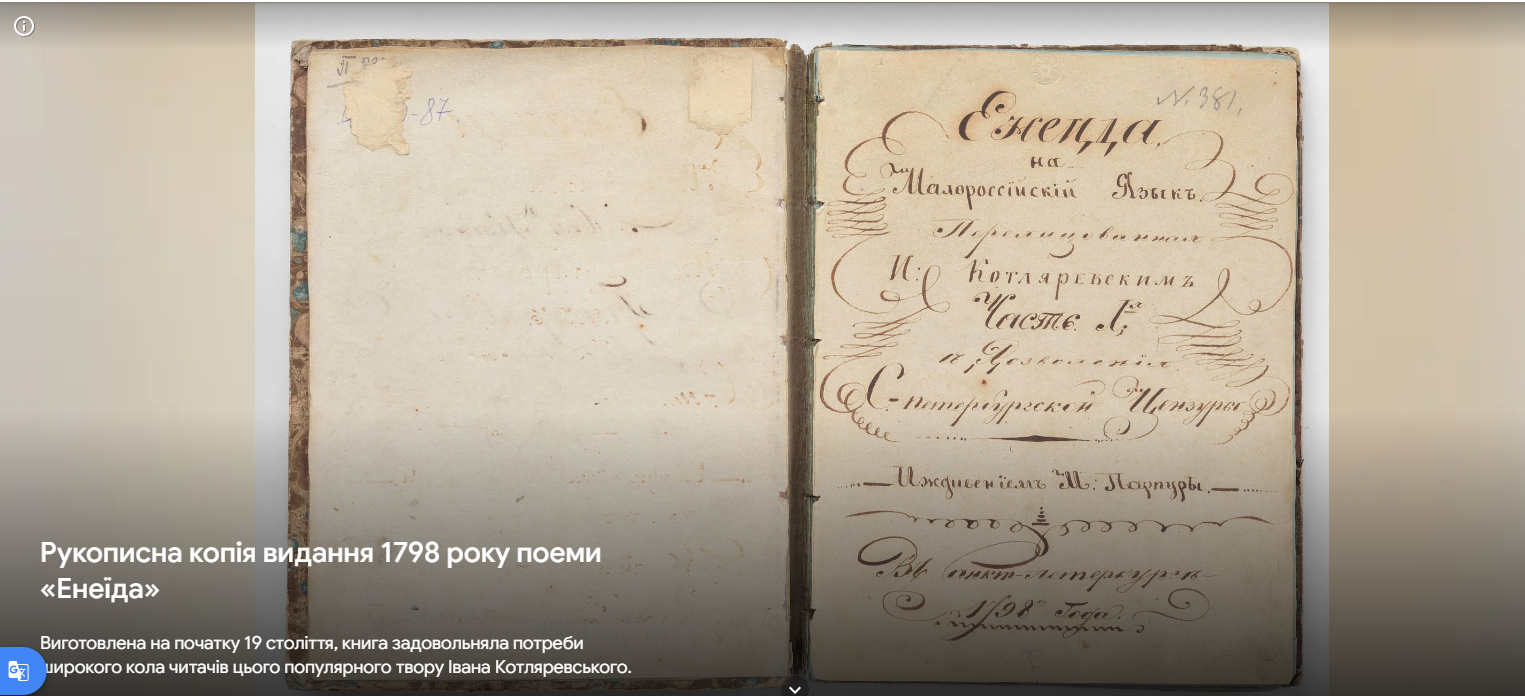 -87.
N. 381.
Енеида,
на
Малороссїйскїй Языкъ.
Перелицованная
И: Котляревскимъ
Часть I.я
Дозволенїя
С-петербургской Цензуры
Иждивенїемъ М: Парпуры.
Въ Санкт-петербургѣ
1798 Года.
Рукописна копія видання 1798 року поеми
«Енеїда»
Виготовлена на початку 19 століття, книга задовольняла потреби
широкого кола читачів цього популярного твору Івана Котляревського.